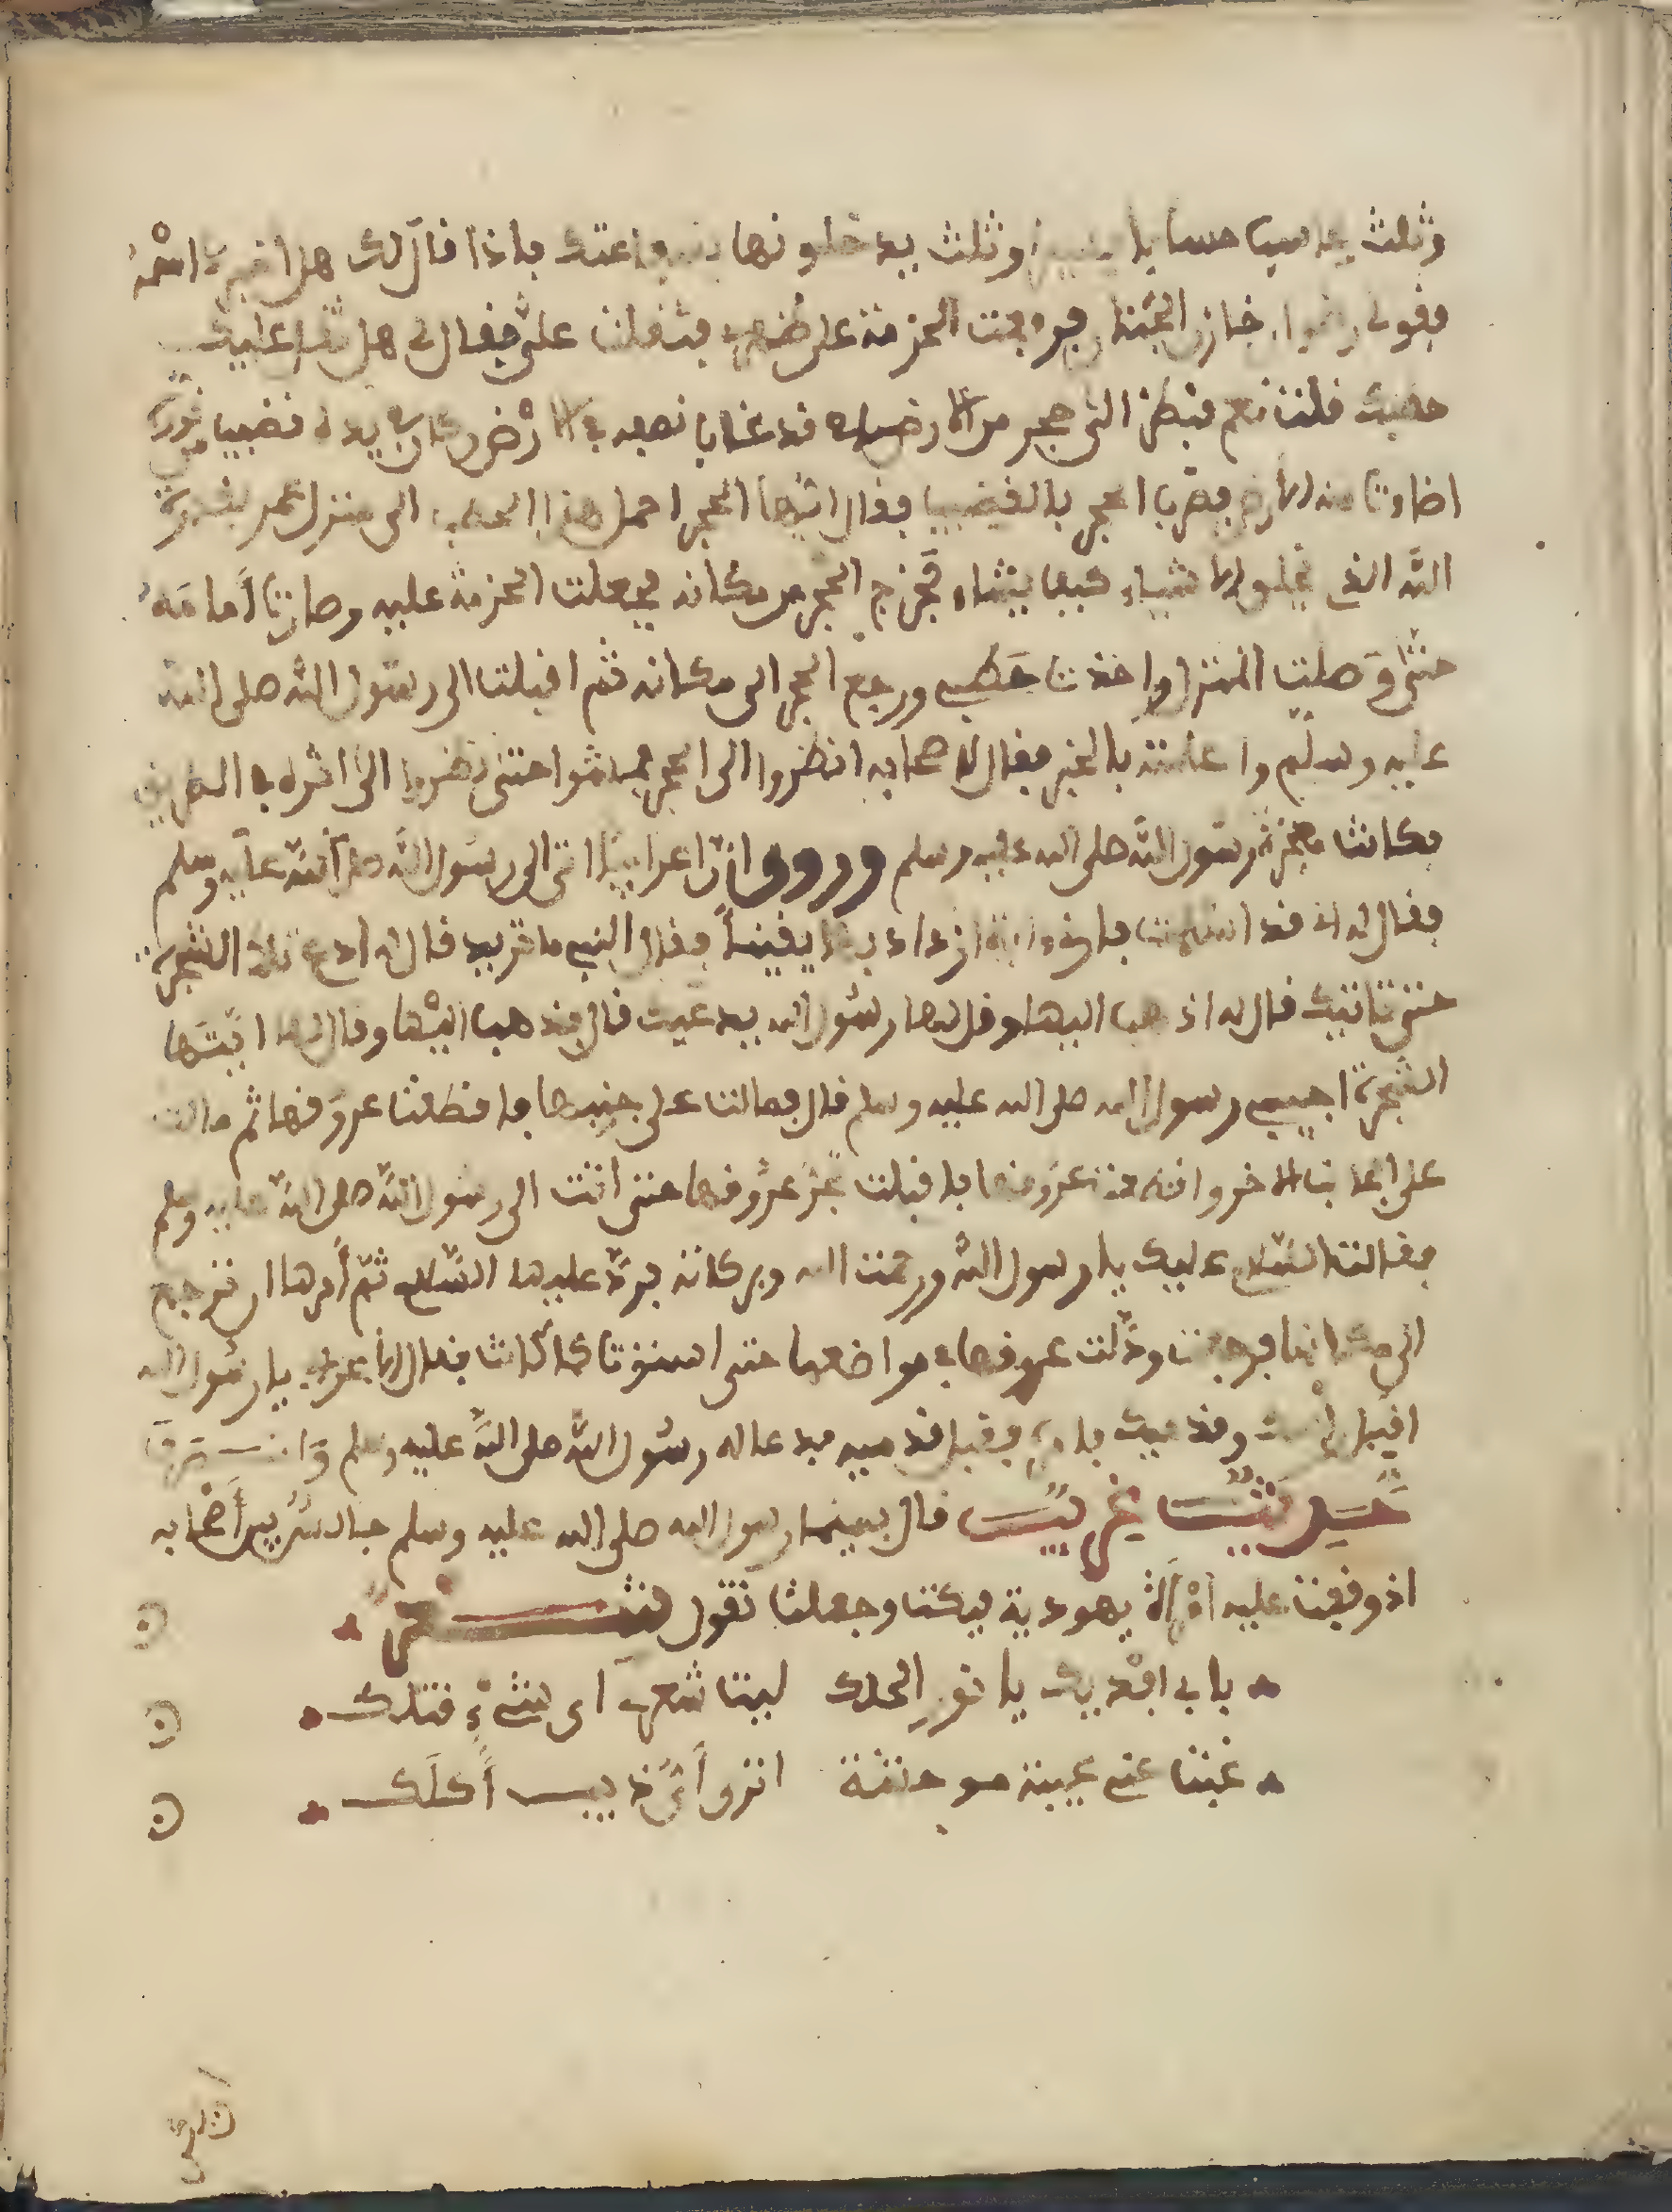 وثلث يحاسب حسابا يسيرا وثلث يدخلونها بشفاعتك فاذا قال لك هل اخبرك اسمه
فقولى رضوان خازن الجنان فرفعت الحزمة على ظهرى فثقلت علىّ فقال لى هل ثقل عليك
حطبك قلت نعم فنظر الى حجر من الارض قد غاب نصفه فى الارض وكان بيده قضيب من نور
اضاءت منه الارض فضرب الحجر بالقضيب فقال ايها الحجر احمل هذا الحطب الى منزل عمر بقدرة
الله الذى يخلق الاشياء كيف يشاء فخرج الحجر من مكانه فجعلت الحزمة عليه وصارت أمامَهُ
حتى وَصلت المنزل واخذت حَطبى ورجع الحجر الى مكانه ثم اقبلت الى رسول الله صلى الله
عليه وسلم واعلمته بالخبر فقال لاصحابه انظروا الى الحجر فمشوا حتى نظروا الى اثره فى الطريق
فكانت معجزة رسول الله صلى الله عليه وسلم وروى انّ اعرابيّا اتى الى رسول الله صلى الله عليه وسلم
فقال له انى قد اسلمت فارنى اية ازداد بها يقيناً فقال النبى ما تريد قال له ادع تلك الشجرة
حتى تاتيك قال له اذهب اليها وقل لها رسول الله يدعيك قال فذهب اليْها وقال لها ايّتها
الشجرة اجيبى رسول الله صلى الله عليه وسلم قال فمالت على جنبها فانقطعت عروقها ثم مالت
على الجانب الاخر وانقطعت عروقها فاقبلت تجرّ عروقها حتى اتت الى رسول الله صلى الله عليه وسلم
فقالت السّلام عليك يا رسول الله ورحمت الله وبركاته فردّ عليها السّلام ثمّ أمرها ان ترجع
الى مكانها فرجعت ودلّت عروقها فى مواضعها حتى استوت كما كانت فقال الاعرابى يا رسول الله
اقبل رأسك وقدميك فاذن فقبل قدميه فدعا له رسول الله صلى الله عليه وسلم وانصرف
حديث غريب قال بينما رسول الله صلى الله عليه وسلم جالس بين أصحابه
اذ وقفت عليه امْرأة يهودية فبكت وجعلت تقول شعر
بابى افديك يا نور الحلك ليت شعرى اى شىء قتلك
غبت عنى غيبة موحشة اترى أىّ ذيب أكلَك